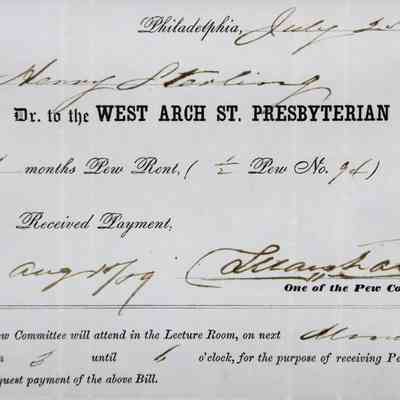 Philadelphia, July
Henry Sterling
Dr. to the WEST ARCH ST. PRESBYTERIAN
months Pew Rent, ( ½ Pew No. 94 )
Received Payment,
Aug
One of the Pew Co
ew Committee will attend in the Lecture Room, on next
3 until 6 o'clock, for the purpose of receiving Pe
quest payment of the above Bill.